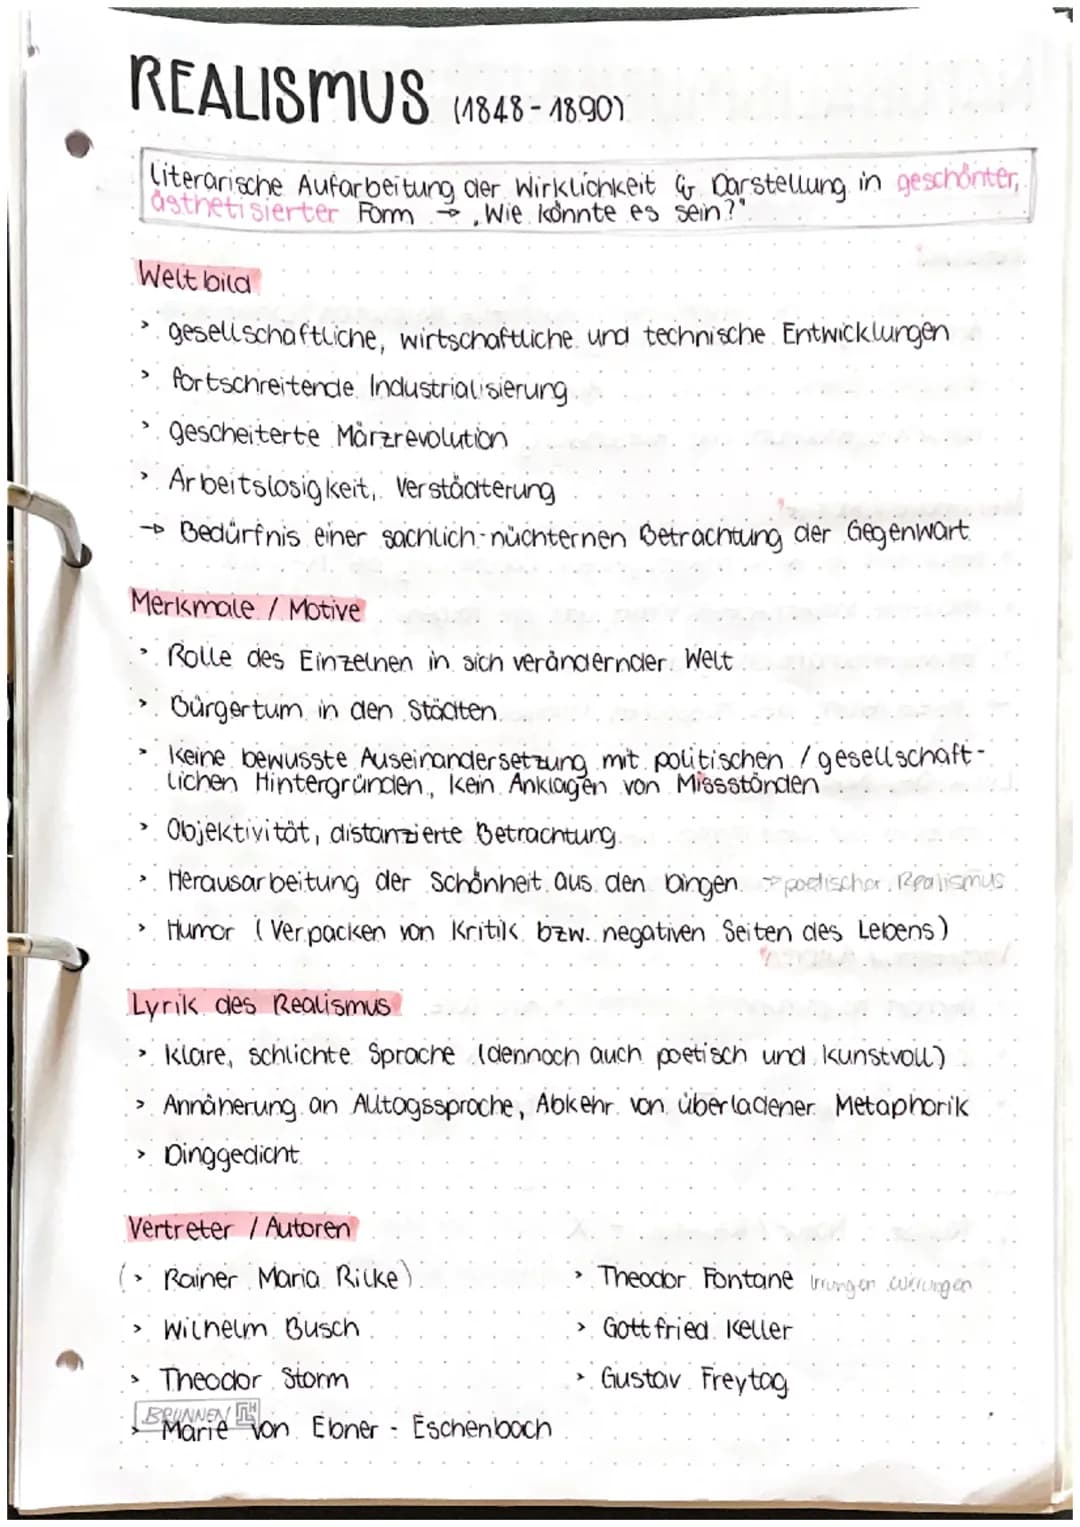 REALISMUS (1848-1890)
literarische Aufarbeitung der Wirklichkeit & Darstellung in geschönter,
ästhetisierter Form → „Wie könnte es sein?"
Weltbild
> gesellschaftliche, wirtschaftliche und technische Entwicklungen
> fortschreitende Industrialisierung
> gescheiterte Märzrevolution
> Arbeitslosigkeit, Verstädterung
→ Bedürfnis einer sachlich-nüchternen Betrachtung der Gegenwart
Merkmale / Motive
> Rolle des Einzelnen in sich verändernder Welt
> Bürgertum in den Städten
> Keine bewusste Auseinandersetzung mit politischen / gesellschaft-
lichen Hintergründen, kein Anklagen von Missständen
> Objektivität, distanzierte Betrachtung
> Herausarbeitung der Schönheit aus den Dingen → poetischer Realismus
> Humor (Verpacken von Kritik bzw. negativen Seiten des Lebens)
Lyrik des Realismus
> klare, schlichte Sprache (dennoch auch poetisch und kunstvoll)
> Annäherung an Alltagssprache, Abkehr von überladener Metaphorik
> Dinggedicht
Vertreter / Autoren
(> Rainer Maria Rilke) > Theodor Fontane Irrungen Wirrungen
> Wilhelm Busch > Gottfried Keller
> Theodor Storm > Gustav Freytag
BRUNNEN
> Marie von Ebner - Eschenbach